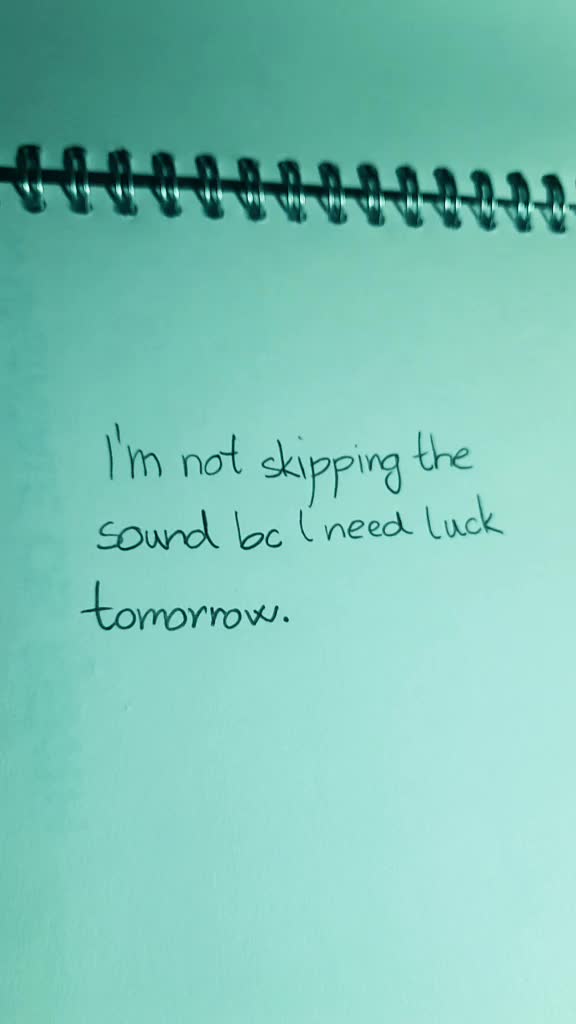 I'm not skipping the
sound bc I need luck
tomorrow.